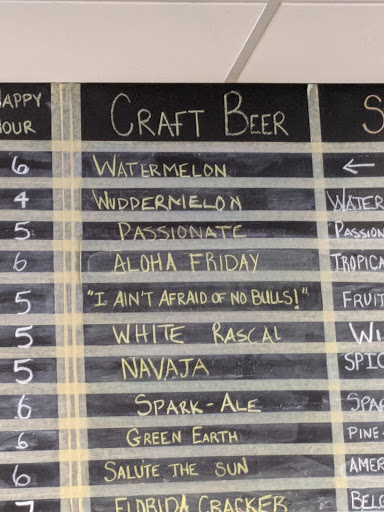 HAPPY HOUR CRAFT BEER S
6 WATERMELON ←
4 WUDDERMELON WATER
5 PASSIONATE PASSION
6 ALOHA FRIDAY TROPICA
5 "I AIN'T AFRAID OF NO BULLS!" FRUIT
5 WHITE RASCAL WI
5 NAVAJA SPIC
6 SPARK-ALE SPAR
6 GREEN EARTH PINE-
6 SALUTE THE SUN AMER
7 FLORIDA CRACKER BELG